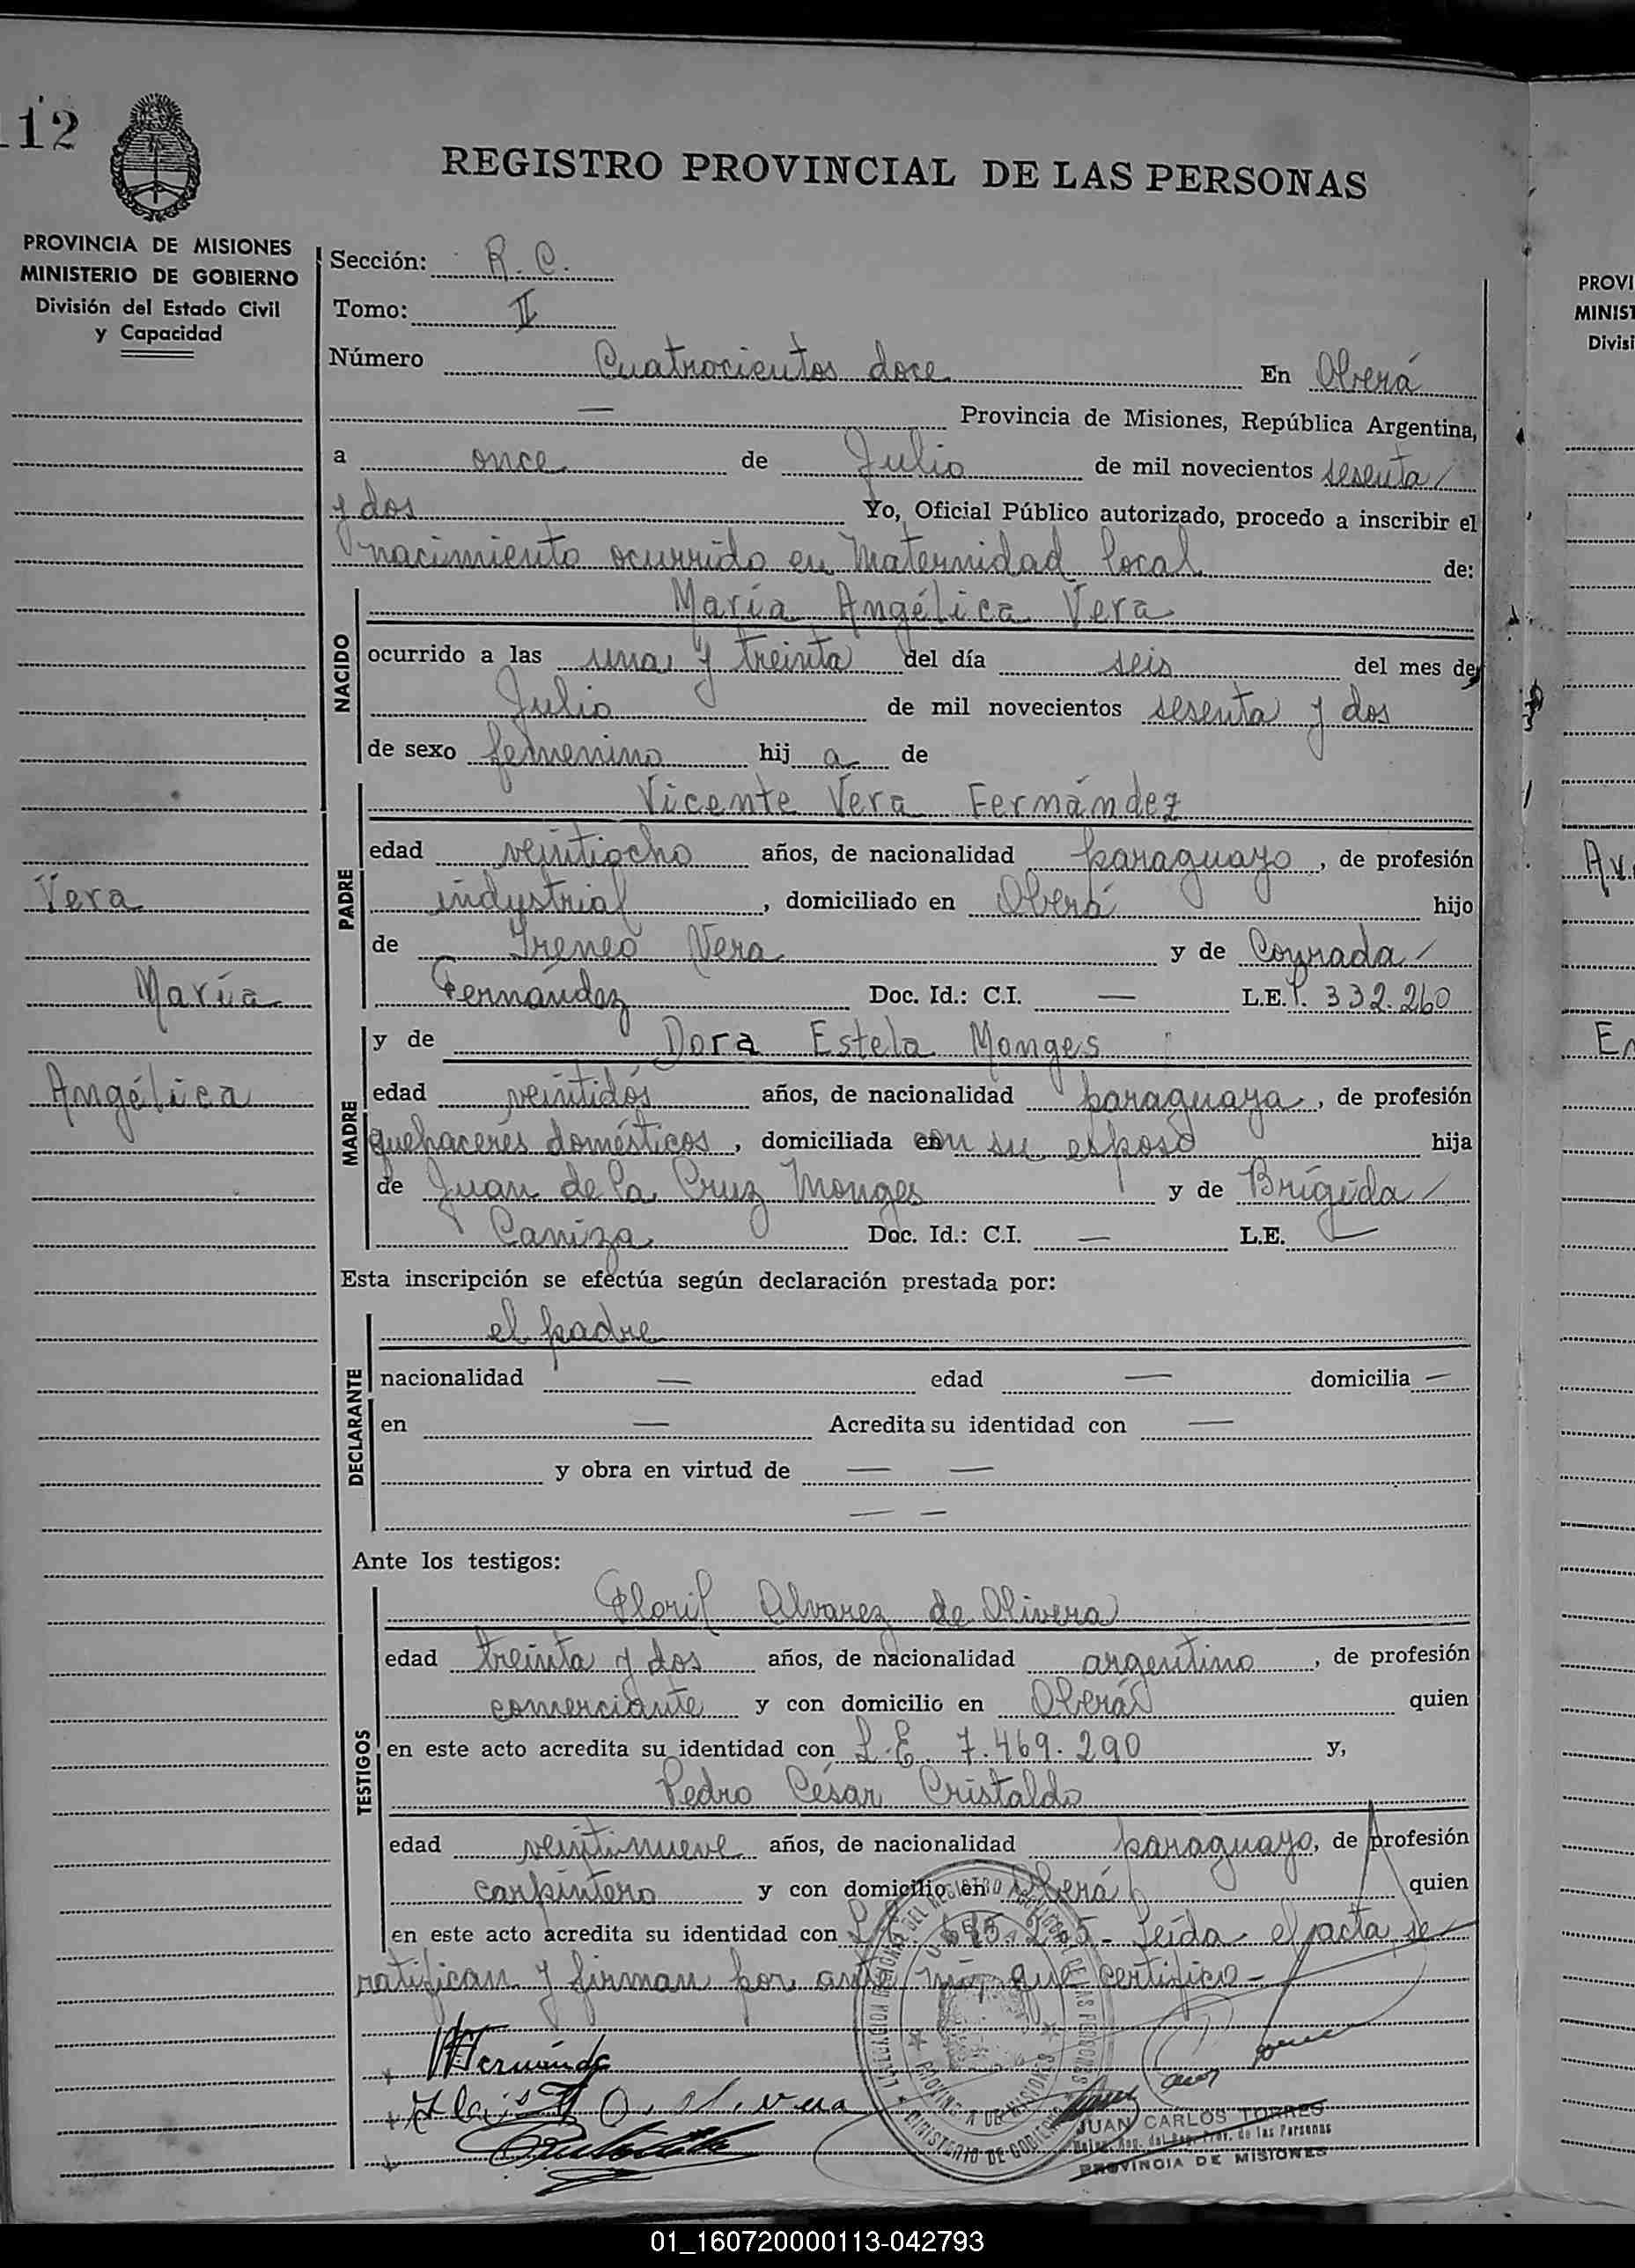 112
REGISTRO PROVINCIAL DE LAS PERSONAS
PROVINCIA DE MISIONES
MINISTERIO DE GOBIERNO
División del Estado Civil
y Capacidad
Vera
María
Angélica
Sección: R. C.
Tomo: II
Número Cuatrocientos doce En Oberá
— Provincia de Misiones, República Argentina,
a once de Julio de mil novecientos sesenta
y dos Yo, Oficial Público autorizado, procedo a inscribir el
nacimiento ocurrido en Maternidad local de:
NACIDO
María Angélica Vera
ocurrido a las una y treinta del día seis del mes de
Julio de mil novecientos sesenta y dos
de sexo femenino hij a de
PADRE
Vicente Vera Fernández
edad veintiocho años, de nacionalidad paraguayo, de profesión
industrial, domiciliado en Oberá hijo
de Ireneo Vera y de Conrada
Fernández Doc. Id.: C.I. — L.E. 332.260
MADRE
y de Dora Estela Monges
edad veintidós años, de nacionalidad paraguaya, de profesión
quehaceres domésticos, domiciliada con su esposo hija
de Juan de la Cruz Monges y de Brígida
Caniza Doc. Id.: C.I. — L.E. —
Esta inscripción se efectúa según declaración prestada por:
DECLARANTE
el padre
nacionalidad — edad — domicilia —
en — Acredita su identidad con —
y obra en virtud de — —
— —
Ante los testigos:
TESTIGOS
Floril Alvarez de Olivera
edad treinta y dos años, de nacionalidad argentino, de profesión
comerciante y con domicilio en Oberá quien
en este acto acredita su identidad con L.E. 7.469.290 y,
Pedro César Cristaldo
edad veintinueve años, de nacionalidad paraguayo, de profesión
carpintero y con domicilio en Oberá quien
en este acto acredita su identidad con Leída el acta se
ratifican y firman por ante mí, que certifico -
JUAN CARLOS TORRES
Prov. de las Personas
PROVINCIA DE MISIONES
PROVI
MINIST
Divisi
01_160720000113-042793